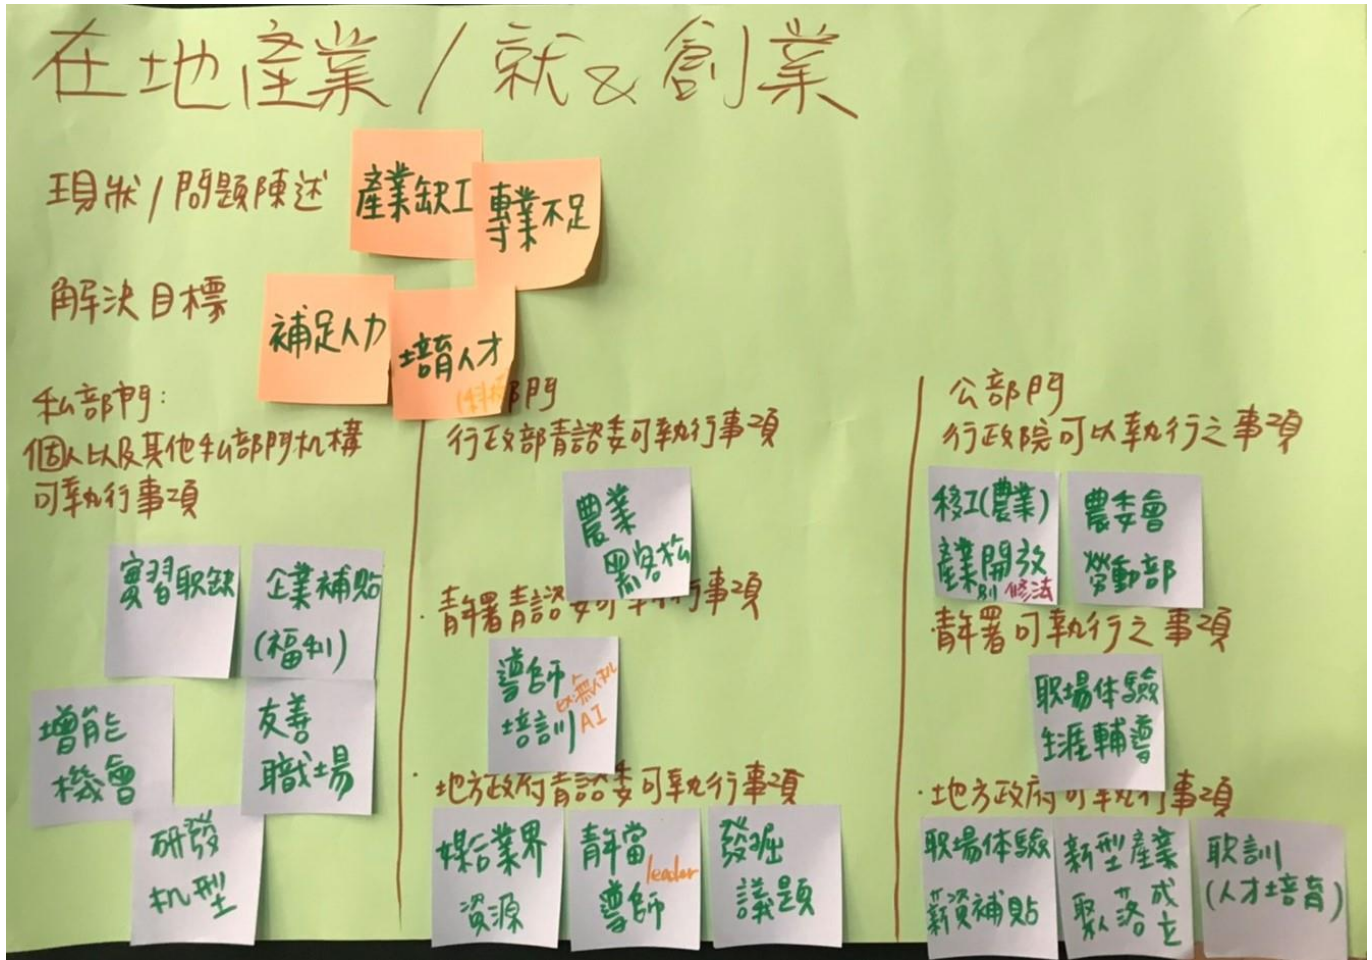 在地產業/就&創業
現狀/問題陳述
產業缺工
專業不足
解決目標
補足人力
培育人才
私部門:
個人以及其他私部門机構
可執行事項
實習职缺
企業補貼
(福利)
增能
機會
友善
職場
研發
机型
部門
行政部青諮委可執行事項
農業
黑客松
青年署青諮委可執行事項
導師
培訓
無人机
AI
·地方政府青諮委可執行事項
媒合業界
資源
青年當
導師
leader
發掘
議題
公部門
行政院可以執行之事項
移工(農業)
產業開放
別 修法
農委會
勞動部
·青年署可執行之事項
职場体驗
生涯輔導
·地方政府可執行事項
职場体驗
薪資補貼
新型產業
聚落成立
职訓
(人才培育)